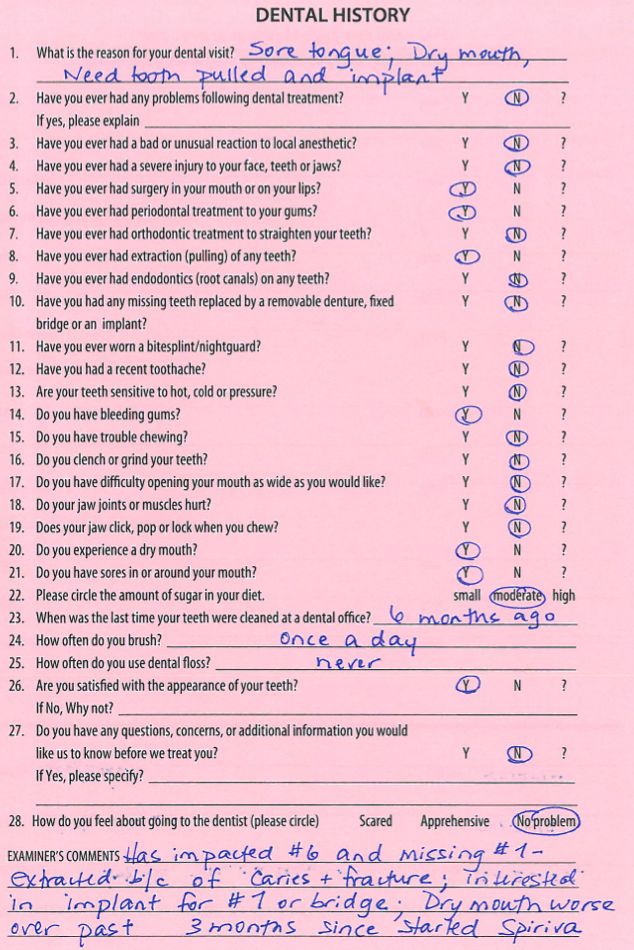 DENTAL HISTORY
1. What is the reason for your dental visit? Sore tongue; Dry mouth,
Need tooth pulled and implant
2. Have you ever had any problems following dental treatment? Y N ?
If yes, please explain
3. Have you ever had a bad or unusual reaction to local anesthetic? Y N ?
4. Have you ever had a severe injury to your face, teeth or jaws? Y N ?
5. Have you ever had surgery in your mouth or on your lips? Y N ?
6. Have you ever had periodontal treatment to your gums? Y N ?
7. Have you ever had orthodontic treatment to straighten your teeth? Y N ?
8. Have you ever had extraction (pulling) of any teeth? Y N ?
9. Have you ever had endodontics (root canals) on any teeth? Y N ?
10. Have you had any missing teeth replaced by a removable denture, fixed Y N ?
bridge or an implant?
11. Have you ever worn a bitesplint/nightguard? Y N ?
12. Have you had a recent toothache? Y N ?
13. Are your teeth sensitive to hot, cold or pressure? Y N ?
14. Do you have bleeding gums? Y N ?
15. Do you have trouble chewing? Y N ?
16. Do you clench or grind your teeth? Y N ?
17. Do you have difficulty opening your mouth as wide as you would like? Y N ?
18. Do your jaw joints or muscles hurt? Y N ?
19. Does your jaw click, pop or lock when you chew? Y N ?
20. Do you experience a dry mouth? Y N ?
21. Do you have sores in or around your mouth? Y N ?
22. Please circle the amount of sugar in your diet. small moderate high
23. When was the last time your teeth were cleaned at a dental office? 6 months ago
24. How often do you brush? once a day
25. How often do you use dental floss? never
26. Are you satisfied with the appearance of your teeth? Y N ?
If No, Why not?
27. Do you have any questions, concerns, or additional information you would
like us to know before we treat you? Y N ?
If Yes, please specify?
28. How do you feel about going to the dentist (please circle) Scared Apprehensive No problem
EXAMINER'S COMMENTS Has impacted #6 and missing #1-
extracted b/c of Caries + fracture; interested
in implant for #1 or bridge; Dry mouth worse
over past 3 months since started Spiriva